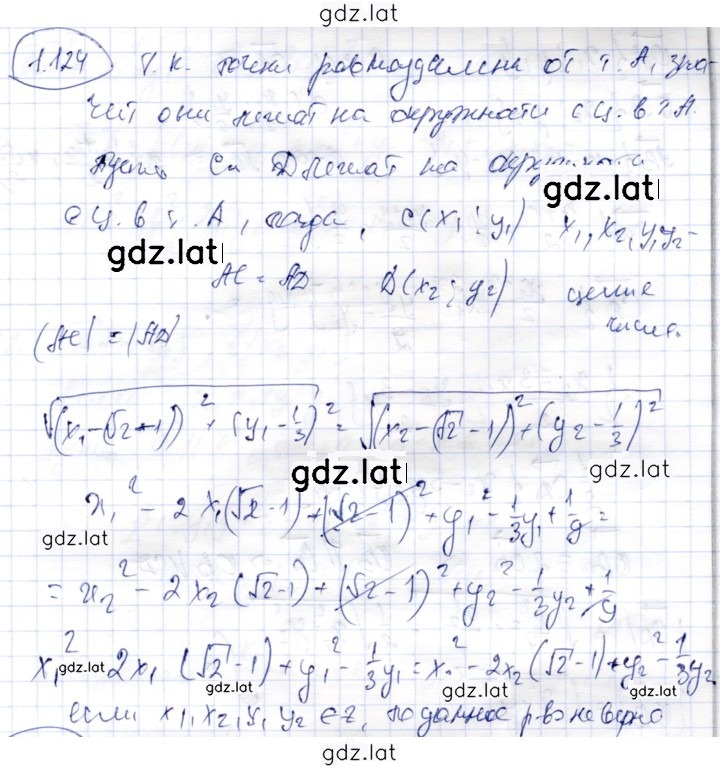 gdz.lat
1.124 Т.к. точки равноудалены от т. А, зна-
чит они лежат на окружности с ц. в т А.
Пусть C и D лежат на окружности
gdz.lat
с ц. в т. А, тогда, C(x₁; y₁) x₁, x₂, y₁ y₂ -
gdz.lat
AC = AD D(x₂; y₂) целые
числа.
|AC| = |AD|
√(x₁-(√2-1))² + (y₁-1/3)² = √(x₂-(√2-1))²+(y₂-1/3)²
gdz.lat gdz.lat
x₁² - 2x₁(√2-1)+(√2-1)²+y₁²-1/3y₁+1/9=
gdz.lat
= x₂² - 2x₂(√2-1)+(√2-1)²+y₂²-1/3y₂+1/9
x₁² 2x₁ (√2-1)+y₁²-1/3y₁=x₂²-2x₂(√2-1)+y₂²-1/3y₂
gdz.lat gdz.lat gdz.lat
если x₁, x₂, y₁ y₂ ∈ z, то данное р-во неверно
gdz.lat